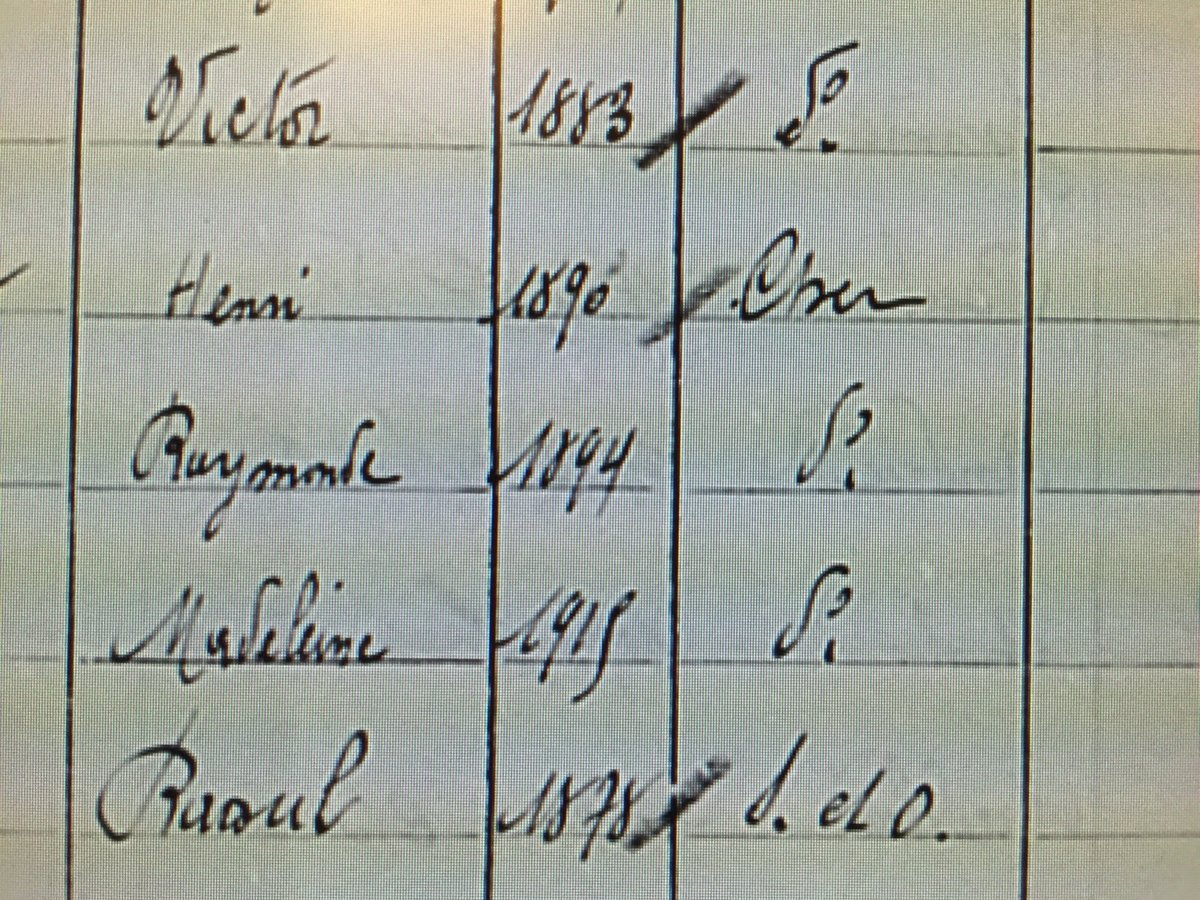 Victor 1883 P.
Henri 1890 Cher
Raymonde 1894 P.
Madeleine 1915 P.
Raoul 1878 S. et O.